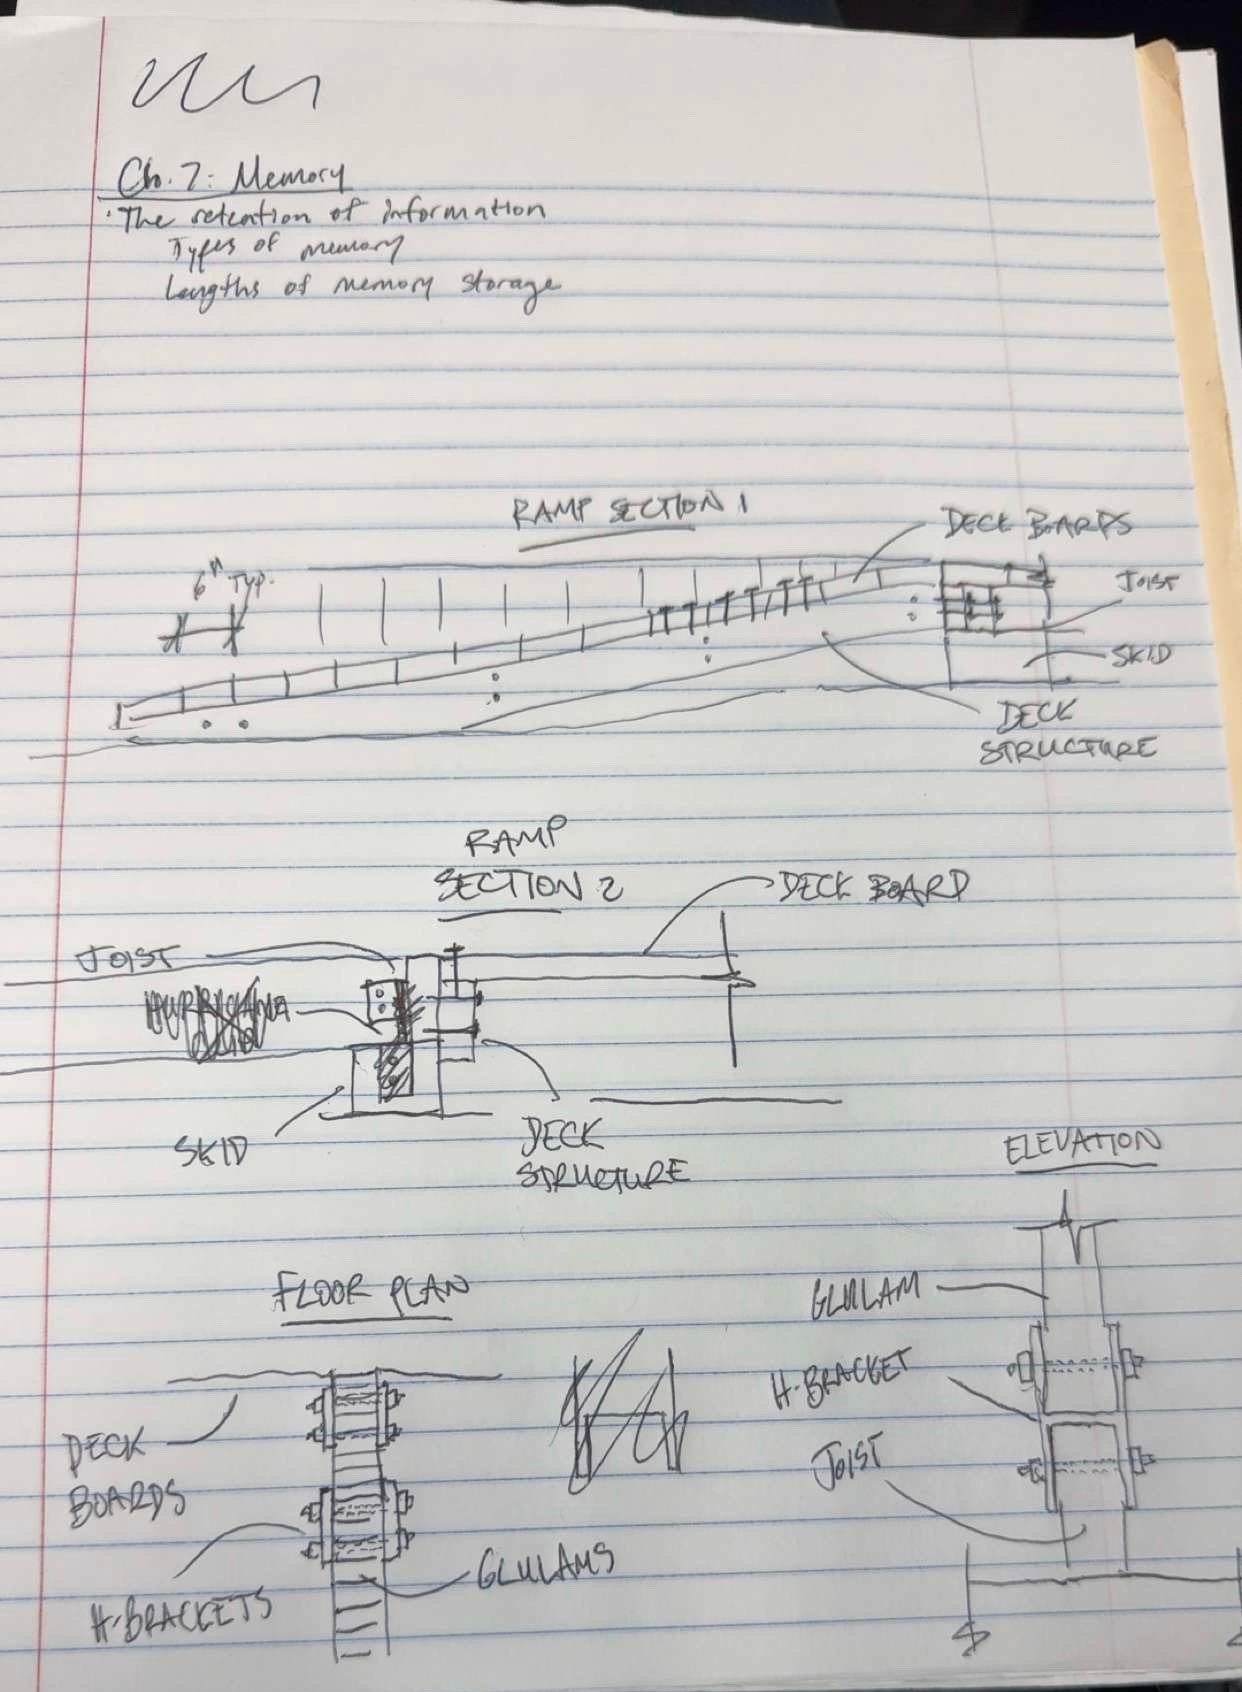 Ch. 7: Memory
· The retention of information
Types of memory
Lengths of memory storage
RAMP SECTION 1
DECK BOARDS
6" TYP.
JOIST
SKID
DECK
STRUCTURE
RAMP
SECTION 2
DECK BOARD
JOIST
SKID
DECK
STRUCTURE
ELEVATION
FLOOR PLAN
GLULAM
H-BRACKET
DECK
BOARDS
JOIST
GLULAMS
H-BRACKETS